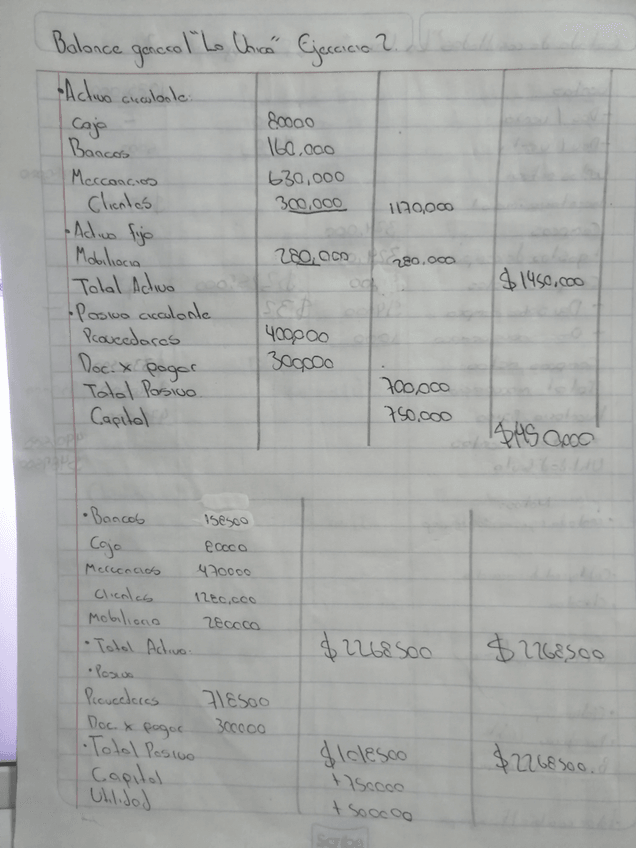 Balance general "La Unica" Ejercicio 2
• Activo circulante:
Caja 80000
Bancos 160,000
Mercancias 630,000
Clientes 300,000 1170,000
• Activo fijo
Mobiliario 280,000 280,000
Total Activo $1450,000
• Pasivo circulante
Proveedores 400,000
Doc. x pagar 300,000
Total Pasivo 700,000
Capital 750,000
$1450,000
• Bancos 158500
Caja 80000
Mercancias 470000
Clientes 1280,000
Mobiliario 280000
• Total Activo. $2268500 $2268,500
• Pasivo
Proveedores 718500
Doc x pagar 300000
• Total Pasivo $1018500 $2268500.
Capital +750000
Utilidad +500000
Scribe